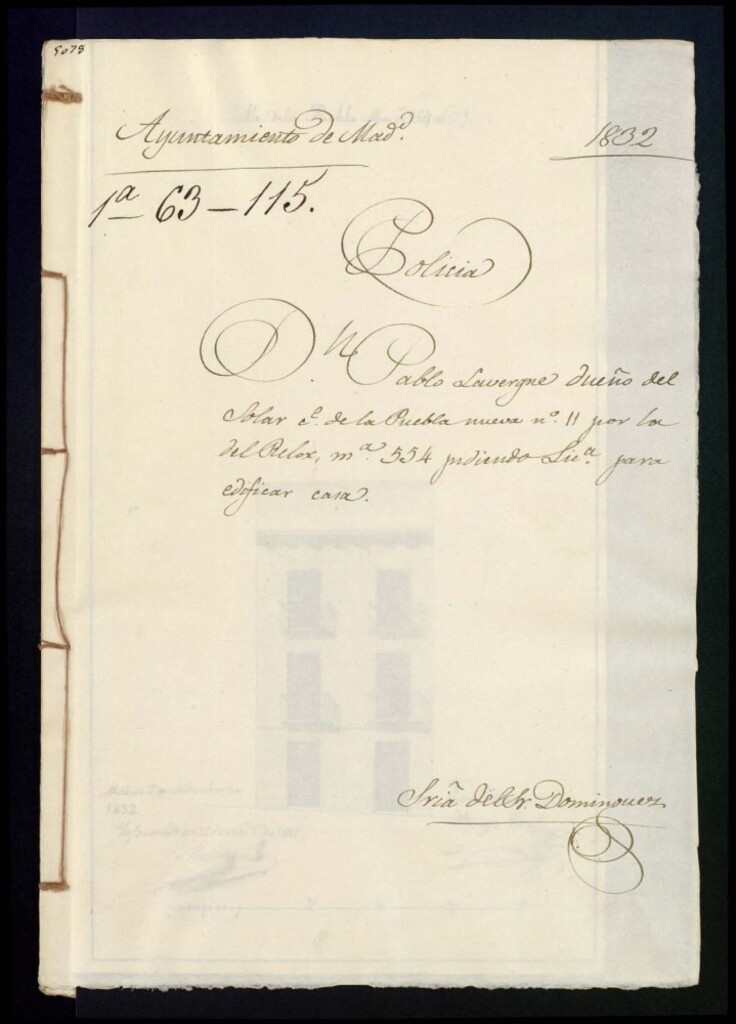 5078
Ayuntamiento de Mad.d
1832
1a 63-115.
Policia
D.n Pablo Lavergne dueño del
Solar c.e de la Puebla nueva n.o 11 por la
del Relox, m.a 554 pidiendo Lic.a para
edificar casa.
Sria del Sr. Dominguez